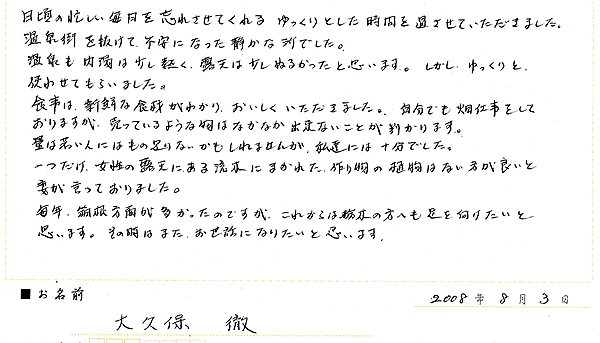 日頃の忙しい毎日を忘れさせてくれる ゆっくりとした時間を過させていただきました。
温泉街を抜けて、不安になった静かな所でした。
温泉も内湯は少し熱く、露天は少しぬるかったと思います。しかし、ゆっくりと、
使わせてもらいました。
食事は、新鮮な食材がわかり、おいしくいただきました。自分でも畑仕事をして
おりますが、売っているような物はなかなか出来ないことが判かります。
量は若い人にはもの足りないかもしれませんが、私達には十分でした。
一つだけ、女性の露天にある流木にまかれた、作り物の植物はない方が良いと
妻が言っておりました。
毎年、箱根方面が多かったのですが、これからは栃木の方へも足を向けたいと
思います。その時はまた、お世話になりたいと思います。
■お名前
2008年 8月 3日
大久保 徹